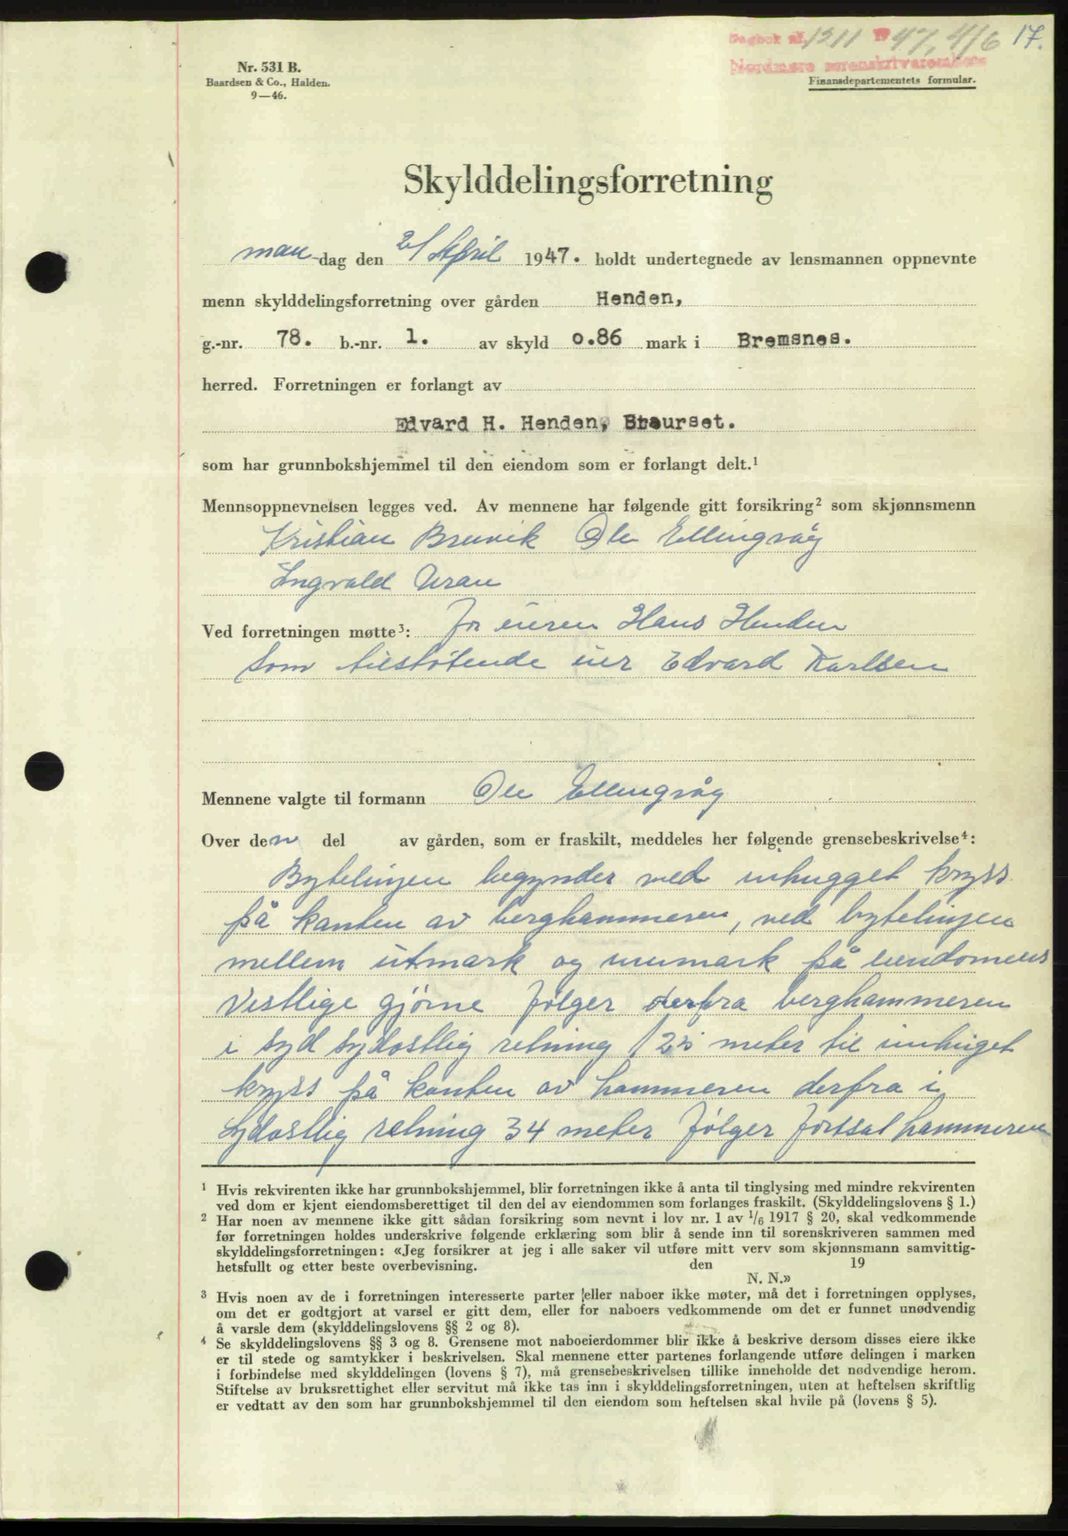 Dagbok nr. 1311 1947, 4/6 17.
Nordmøre sorenskriverembete
Nr. 531 B.
Baardsen & Co., Halden.
9—46.
Finansdepartementets formular.
Skylddelingsforretning
mandag den 21 April 1947. holdt undertegnede av lensmannen oppnevnte
menn skylddelingsforretning over gården Henden,
g.-nr. 78. b.-nr. 1. av skyld 0.86 mark i Bremsnes.
herred. Forretningen er forlangt av
Edvard H. Henden, Staurset.
som har grunnbokshjemmel til den eiendom som er forlangt delt.¹
Mennsoppnevnelsen legges ved. Av mennene har følgende gitt forsikring² som skjønnsmenn
Kristian Bruvik Ole Ellingvåg
Ingvald Uran
Ved forretningen møtte³: for eieren Hans Henden
som tilstøtende eier Edvard Karlsen
Mennene valgte til formann Ole Ellingvåg
Over den del av gården, som er fraskilt, meddeles her følgende grensebeskrivelse⁴:
Bytelinjen begynder ved inhugget kryss
på kanten av berghammeren, ved bytelinjen
mellem utmark og innmark på eiendomens
Vestlige gjørne følger derfra berghammeren
i syd sydostlig retning 123 meter til innhuget
kryss på kanten av hammeren derfra i
sydostlig retning 34 meter følger fortsat hammeren
¹ Hvis rekvirenten ikke har grunnbokshjemmel, blir forretningen ikke å anta til tinglysing med mindre rekvirenten
ved dom er kjent eiendomsberettiget til den del av eiendommen som forlanges fraskilt. (Skylddelingslovens § 1.)
² Har noen av mennene ikke gitt sådan forsikring som nevnt i lov nr. 1 av ¹/₆ 1917 § 20, skal vedkommende
før forretningen holdes underskrive følgende erklæring som blir å sende inn til sorenskriveren sammen med
skylddelingsforretningen: «Jeg forsikrer at jeg i alle saker vil utføre mitt verv som skjønnsmann samvittig-
hetsfullt og etter beste overbevisning. den 19
N. N.»
³ Hvis noen av de i forretningen interesserte parter eller naboer ikke møter, må det i forretningen opplyses,
om det er godtgjort at varsel er gitt dem, eller for naboers vedkommende om det er funnet unødvendig
å varsle dem (skylddelingslovens §§ 2 og 8).
⁴ Se skylddelingslovens §§ 3 og 8. Grensene mot naboeierdommer blir ikke å beskrive dersom disses eiere ikke
er til stede og samtykker i beskrivelsen. Skal mennene etter partenes forlangende utføre delingen i marken
i forbindelse med skylddelingen (lovens § 7), må grensebeskrivelsen tillike inneholde det nødvendige herom.
Stiftelse av bruksrettighet eller servitut må ikke tas inn i skylddelingsforretningen, uten at heftelsen skriftlig
er vedtatt av den som har grunnbokshjemmel til den eiendom som heftelsen skal hvile på (lovens § 5).